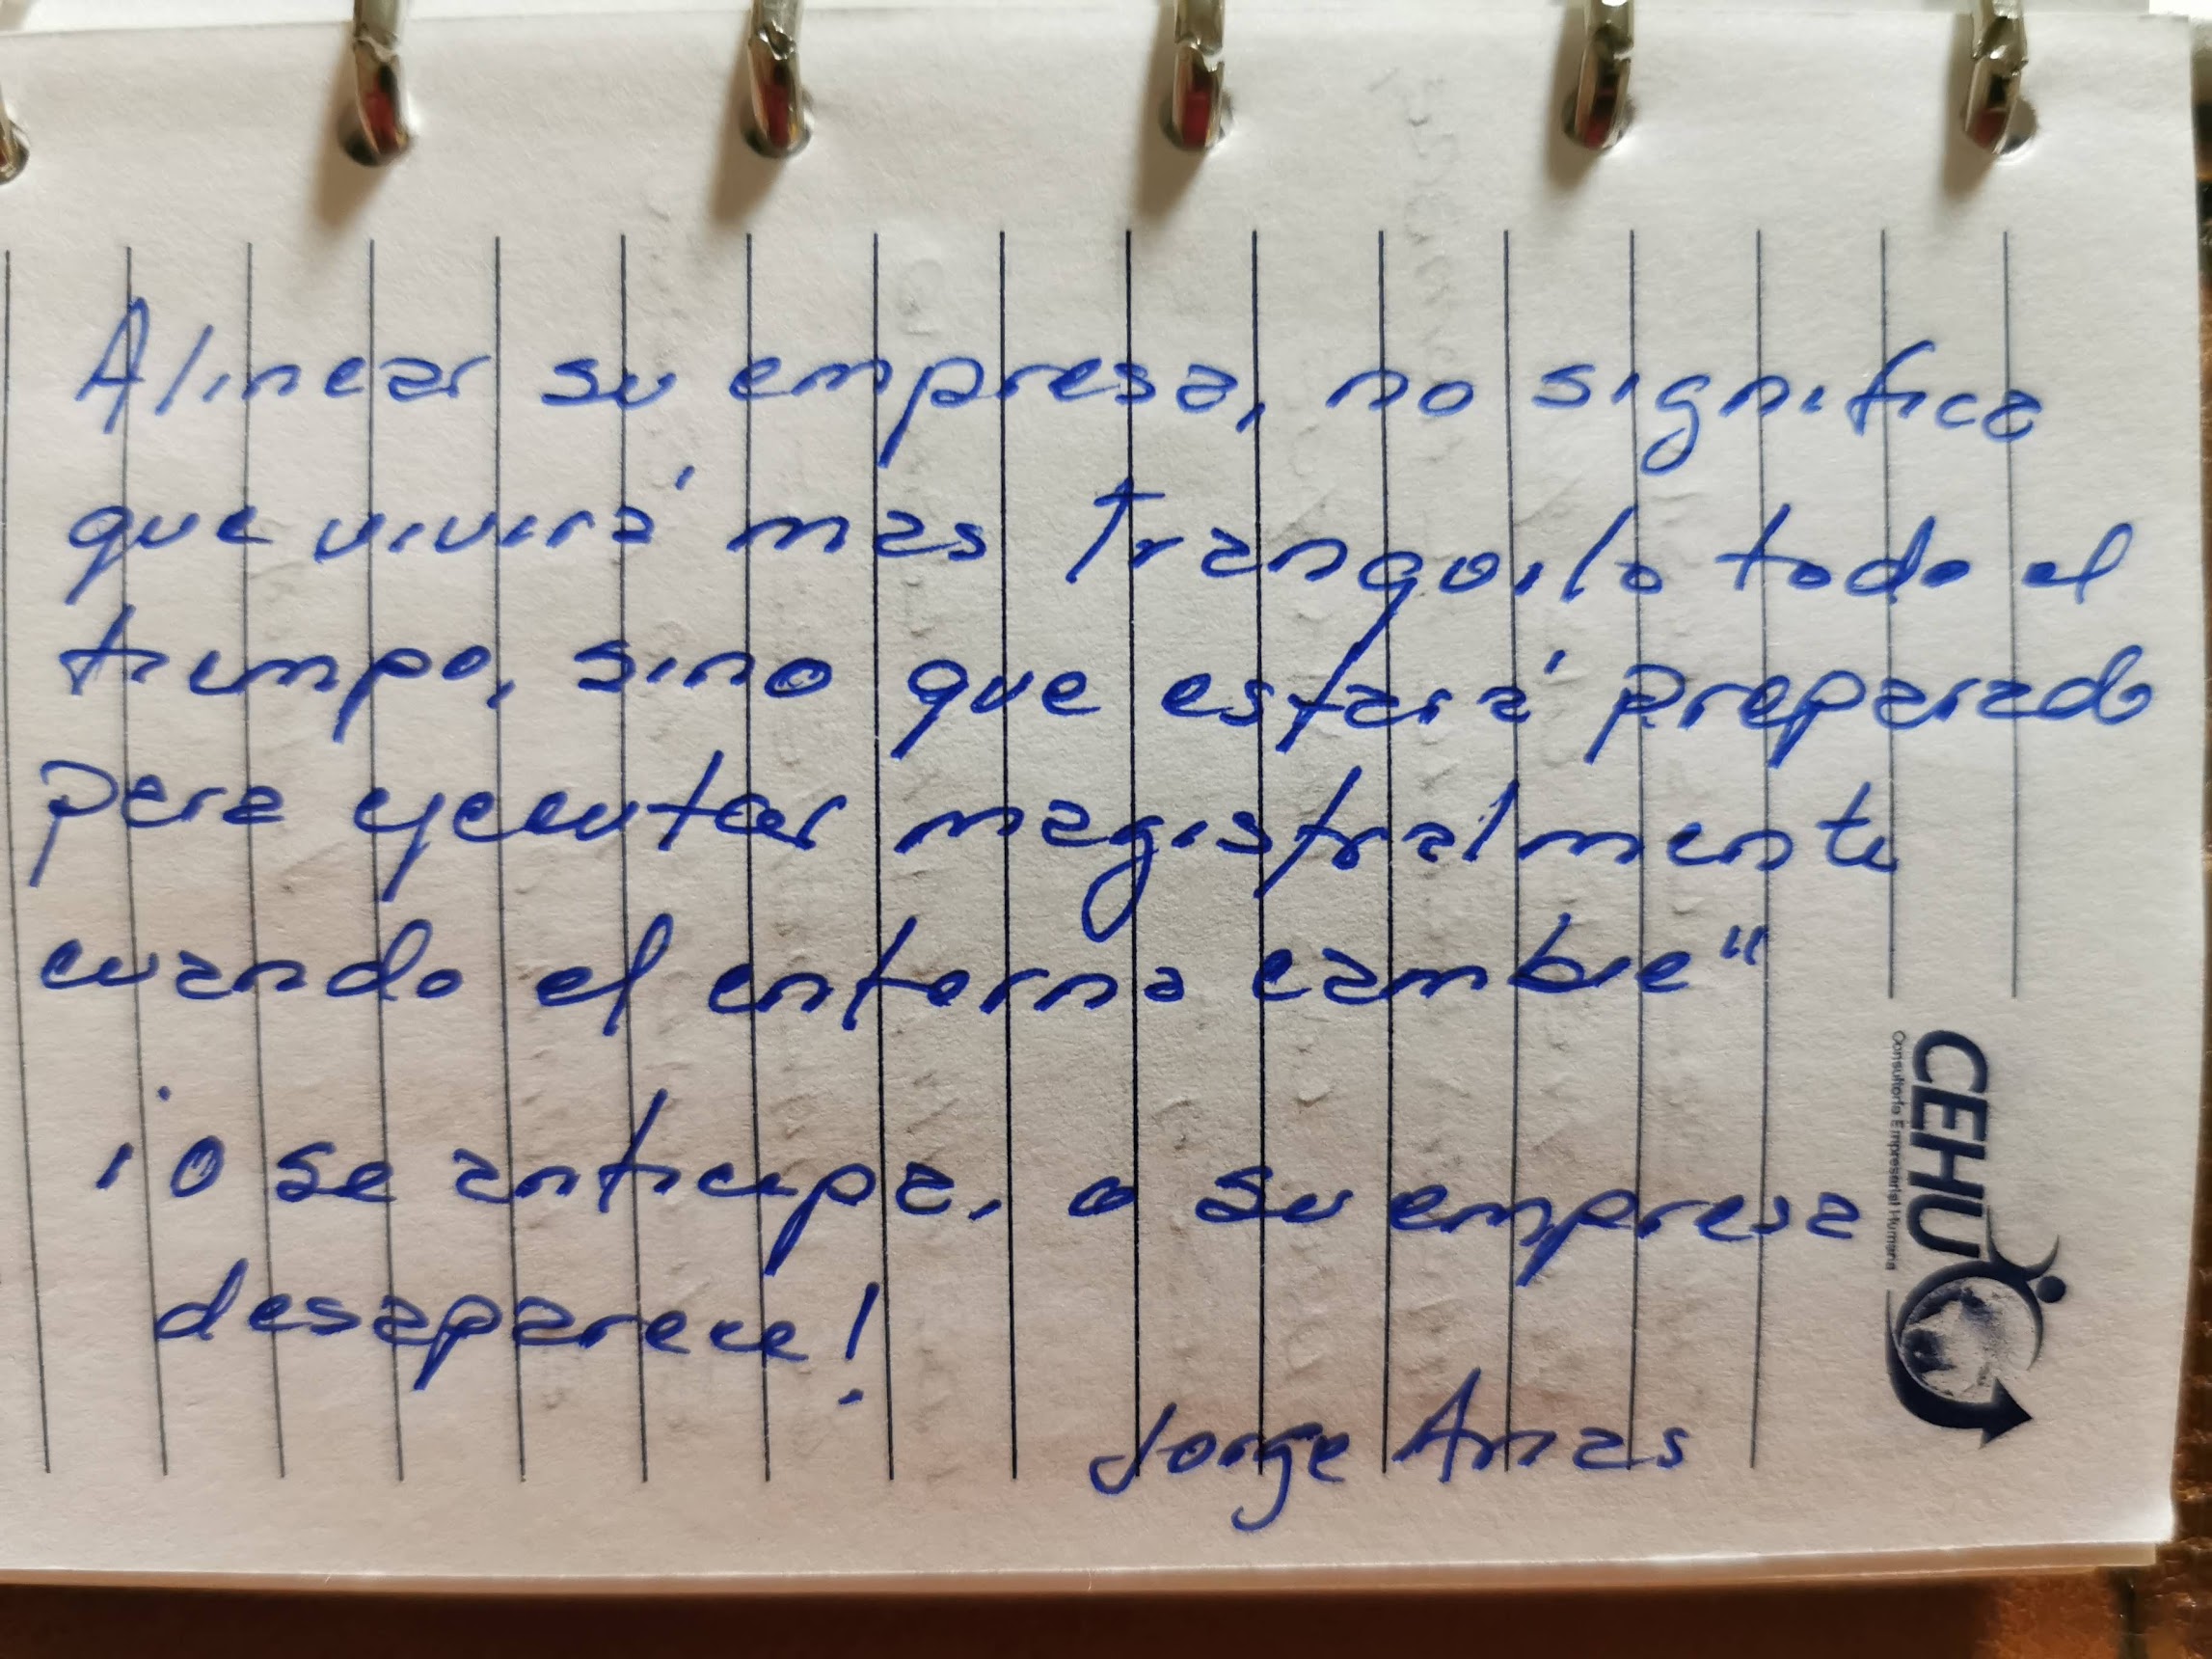 Alinear su empresa, no significa
que vivirá mas tranquilo todo el
tiempo, sino que estará preparado
para ejecutar magistralmente
cuando el entorno cambie"
¡O se anticipa, o su empresa
desaparece!
Jorge Arias
CEHU
Consultoría Empresarial Humana